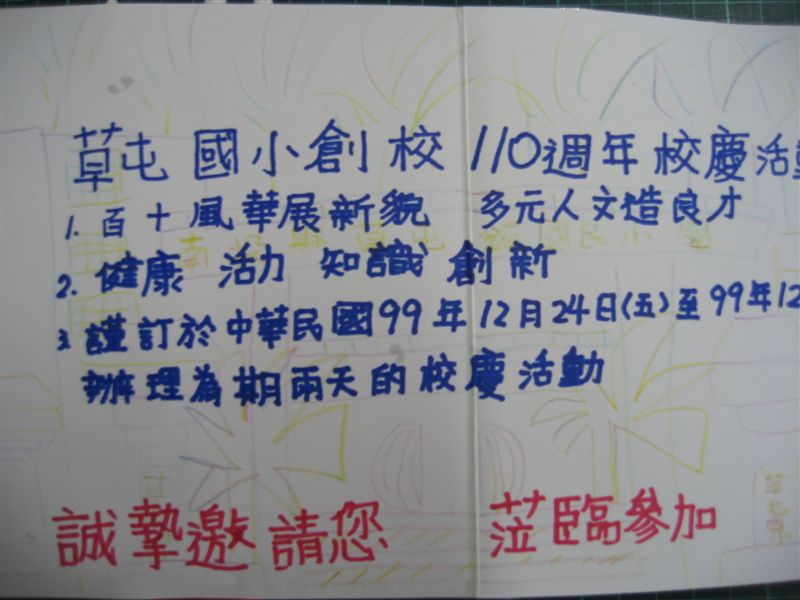 草屯 國小創校 110週年 校慶活
1. 百十風華展新貌 多元人文造良才
2. 健康 活力 知識 創新
3. 謹訂於中華民國99年12月24日(五)至99年12
辦理為期兩天的校慶活動
誠摯邀請您 蒞臨參加